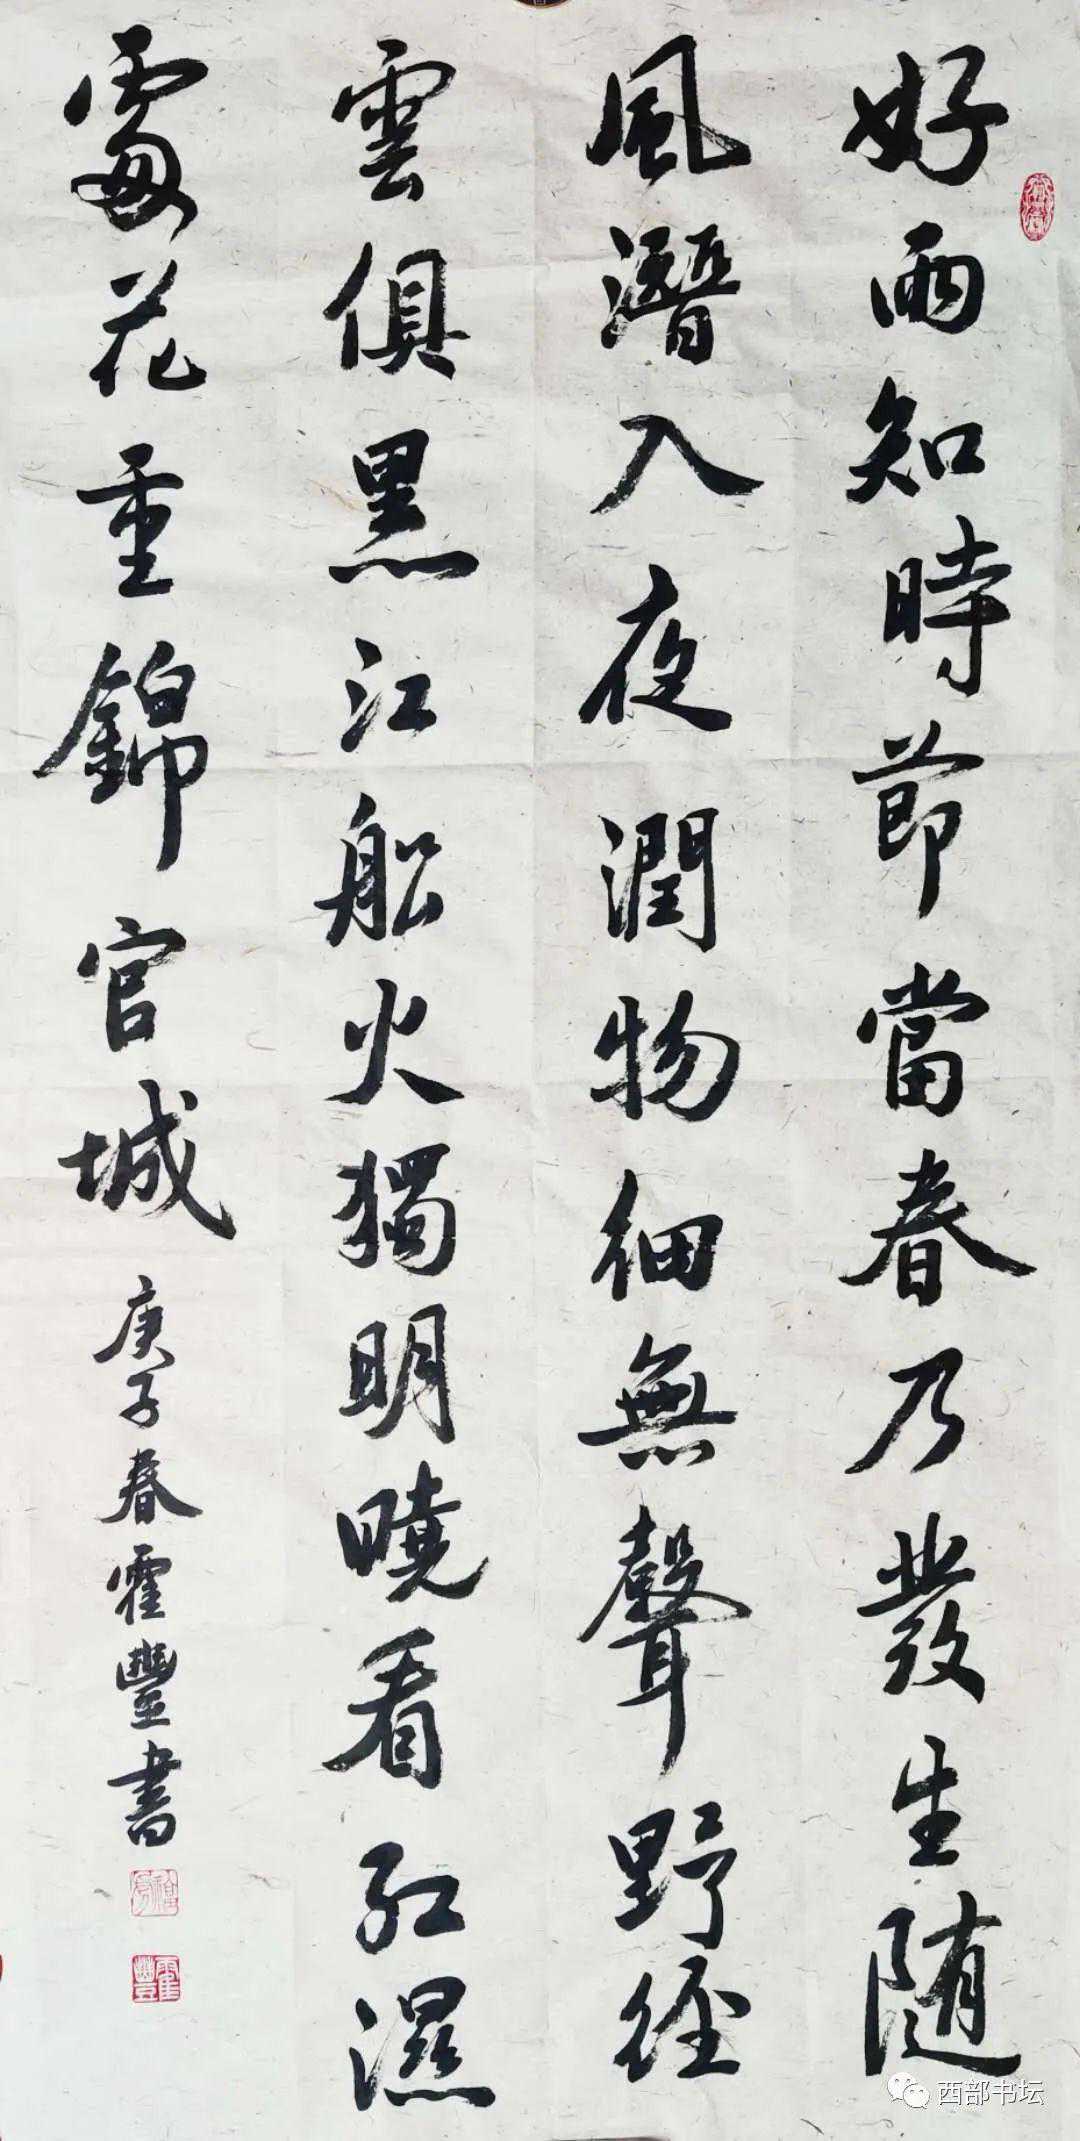 好雨知時節當春乃發生随
風潛入夜潤物細無聲野徑
雲俱黑江船火獨明曉看紅濕
處花重錦官城
庚子春霍豐書
霍豐
西部书坛